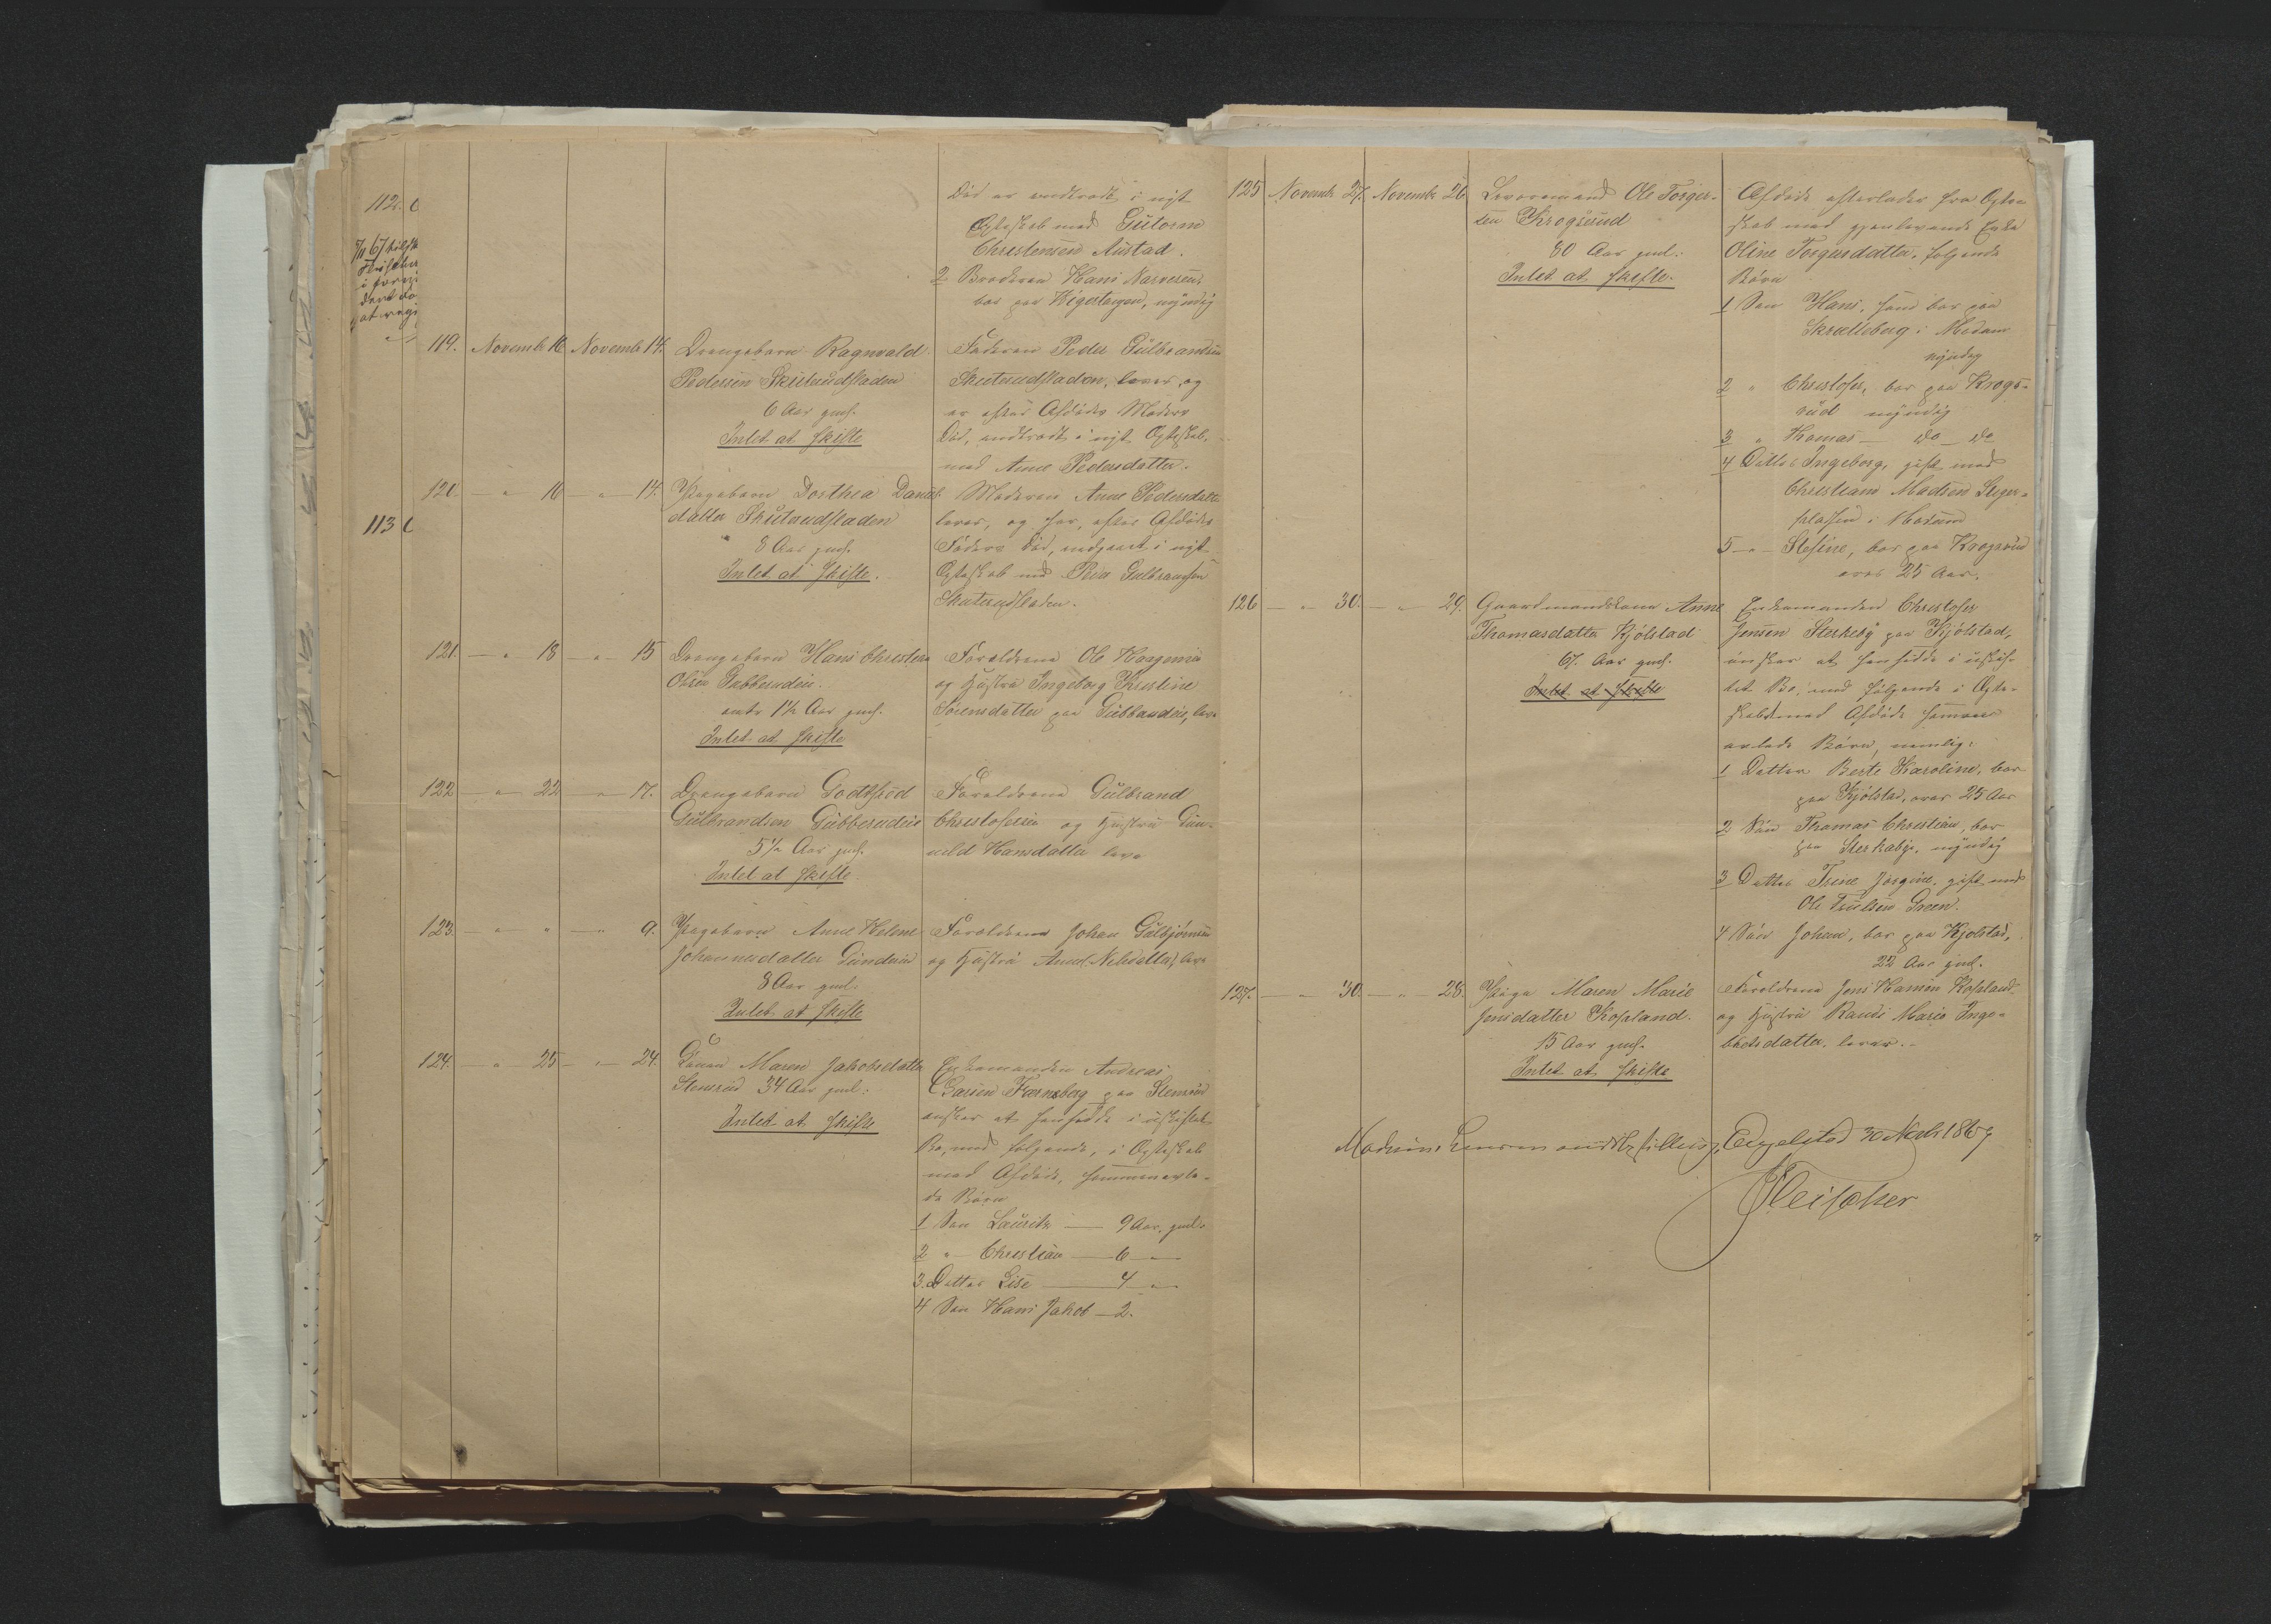 112.
113
Død er indtraadt i nyt
Egteskab med Gutorm
Christensen Austad.
2 Broderen Hans Narvesen,
bor paa, myndig
119. Novembr 16 Novembr 14. Drengebarn Ragnvald
Pedersen Skuterudstaden
6 Aar gml.
Intet at skifte
Faderen Peder Gulbrandsen
Skuterudstaden, lever, og
er efter Afdødes Moders
Død, indtraadt i nyt Egteskab,
med Anne Pedersdatter.
120. — " 16 — " — 14. Pigebarn Dorthea Daniels
datter Skuterudstaden
8 Aar gml.
Intet at skifte.
Moderen Anne Pedersdatter
lever, og har, efter Afdødes
Faders Død, indgaaet i nyt
Egteskab med Peder Gulbrandsen
Skuterudstaden.
121. — " — 18 — " — 15 Drengebarn Hans Christian
Olsen Gubberudeie.
1½ Aar gml.
Intet at skifte
Forældrene Ole
og Hustru Ingeborg Kristine
Sørensdatter paa Gubberudeie, leve
122 — " — 22 — " — 17. Drengebarn Godtfred
Gulbrandsen Gubberudeie
5½ Aar gml.
Intet at skifte
Forældrene Gulbrand
Christofersen og Hustru Gun-
nild Hansdatter leve
123. — " — " — " 9. Pigebarn Anne Helene
Johannesdatter
8 Aar gml.
Intet at skifte
Forældrene Johan Gulbjørnsen
og Hustru Anne Nilsdatter, leve
124. — " — 25 — " — 24. Konen Maren Jakobsdatter
Stensrud 34 Aar gml.
Intet at skifte
Enkemanden Andreas
paa Stensrud
ønsker at hensidde i uskiftet
Bo, med følgende, i Egteskab
med Afdøde, sammenavle-
de Børn
1 Søn Lauritz — 9 Aar gml.
2 " — Christian — 6 "
3. Datter Lise — 4 "
4 Søn Hans Jakob — 2.
125 Novembr 27. Novembr 26. Ole Torger-
sen Krogsrud
80 Aar gml.
Intet at skifte.
Afdøde efterlader fra Egte-
skab med gjenlevende Enke
Oline Torgersdatter, følgende
Børn
1 Søn Hans, som bor paa
Skrælleberg i Modum
myndig
2 " Christofer, bor paa Krogs-
rud myndig
3 " Thomas — do — do
4 Datter Ingeborg, gift med
Christian Madsen
i Modum
5 — " — bor paa Krogsrud
over 25 Aar.
126 — " 30. — " — 29. Gaardmandskone Anne
Thomasdatter Kjølstad
67. Aar gml.
Intet at skifte
Enkemanden Christofer
Jensen Sterkeby paa Kjølstad,
ønsker at hensidde i uskif-
tet Bo, med følgende i Egte-
skabet med Afdøde sammen
avlede Børn, nemlig:
1 Datter Berte Karoline, bor
paa Kjølstad, over 25 Aar
2 Søn Thomas Christian, bor
paa Sterkeby, myndig
3 Datter Trine Jørgine, gift med
Ole Trulsen Green.
4 Søn Johan, bor paa Kjølstad,
22 Aar gml.
127. — " 30. — " — 28. Pige Maren Marie
Jensdatter Kopland.
15 Aar gml.
Intet at skifte
Forældrene Jens Hansen Kopland
og Hustru Randi Marie Inge-
bretsdatter, lever.—
Modums Lensmandsbestilling, 30 Novbr 1867
Fleischer